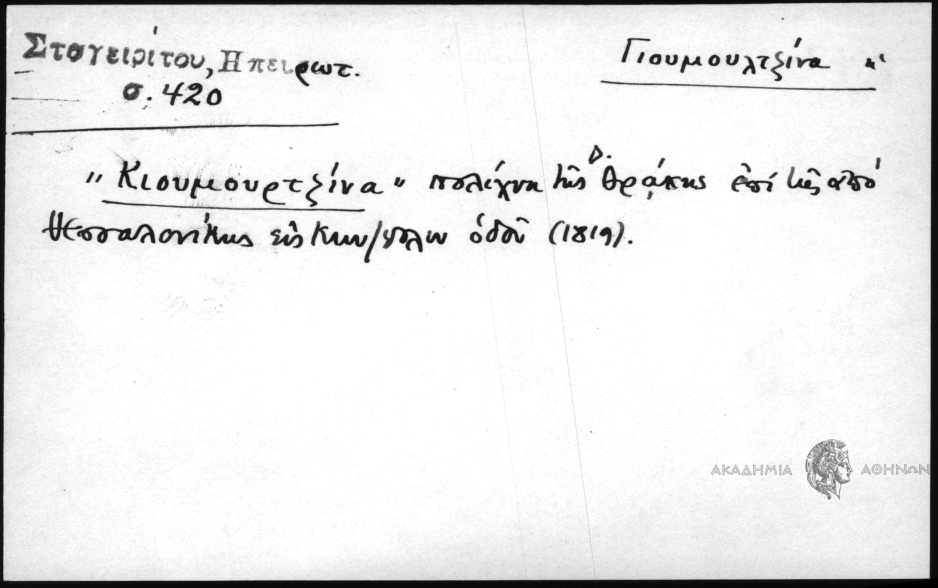 Σταγειρίτου, Ηπειρωτ.
σ. 420
Γιουμουλτζίνα κ'
"Κιουμουρτζίνα" πολίχνα τῆς Δ. Θράκης ἐπί τῆς ἀπό
Θεσσαλονίκης εἰς Κων/πολιν ὁδοῦ (1819).
ΑΚΑΔΗΜΙΑ ΑΘΗΝΩΝ